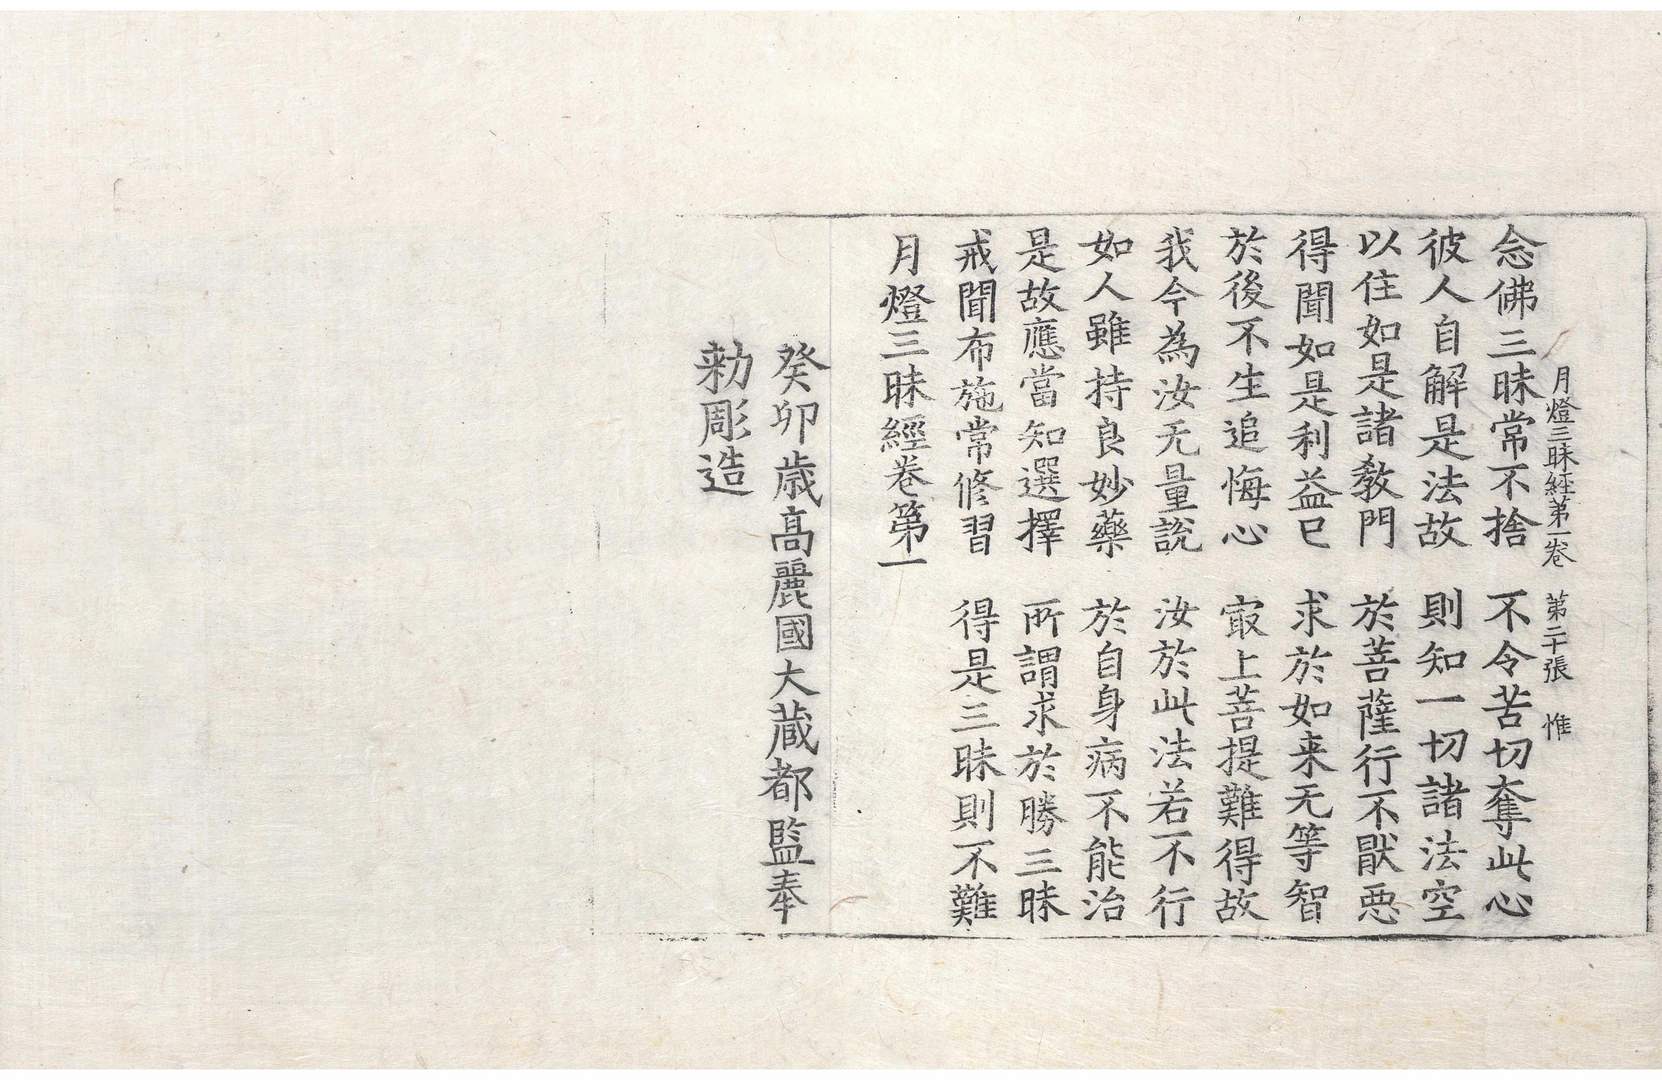 月燈三昧経第一卷　第二十張　惟
念佛三昧常不捨　不令苦切奪此心
彼人自解是法故　則知一切諸法空
以住如是諸教門　於菩薩行不猒惡
得聞如是利益已　求於如来无等智
於後不生追悔心　㝡上菩提難得故
我今為汝无量說　汝於此法若不行
如人雖持良妙藥　於自身病不能治
是故應當知選擇　所謂求於勝三昧
戒聞布施常修習　得是三昧則不難
月燈三昧經卷第一
癸卯歳高麗國大蔵都監奉
勑彫造